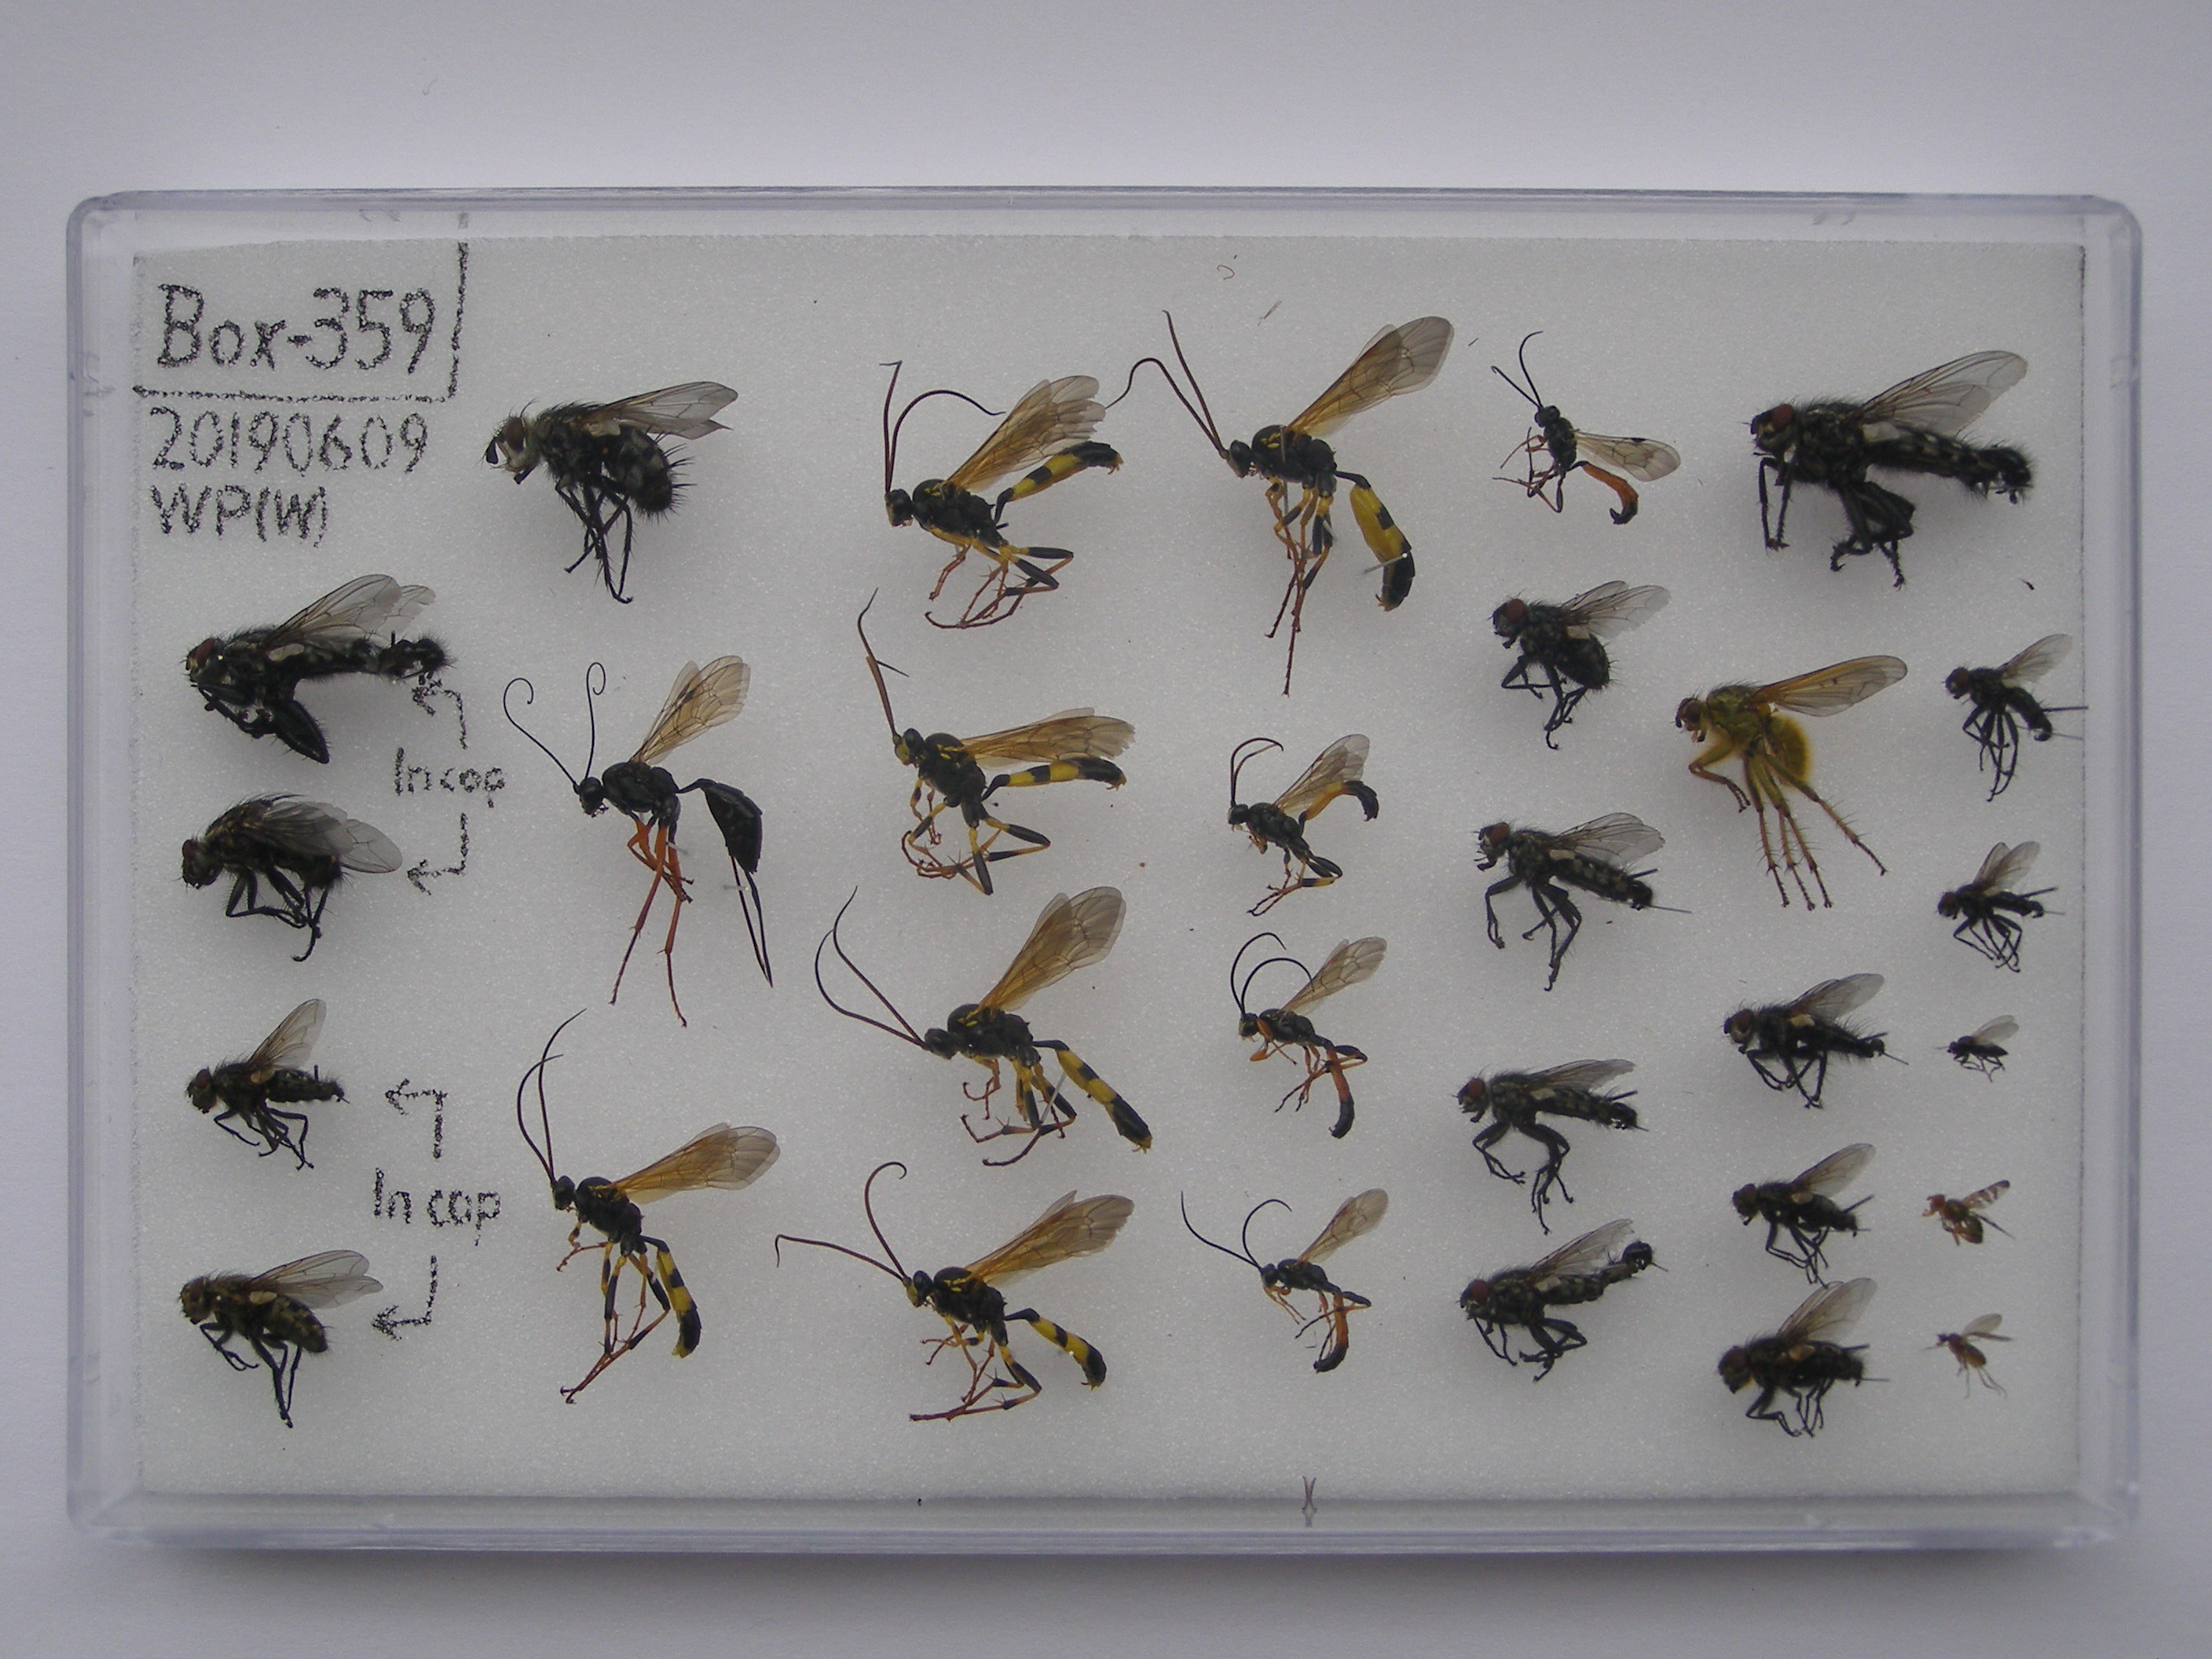 Box-359
20190609
WP(W)
In cop
In cop